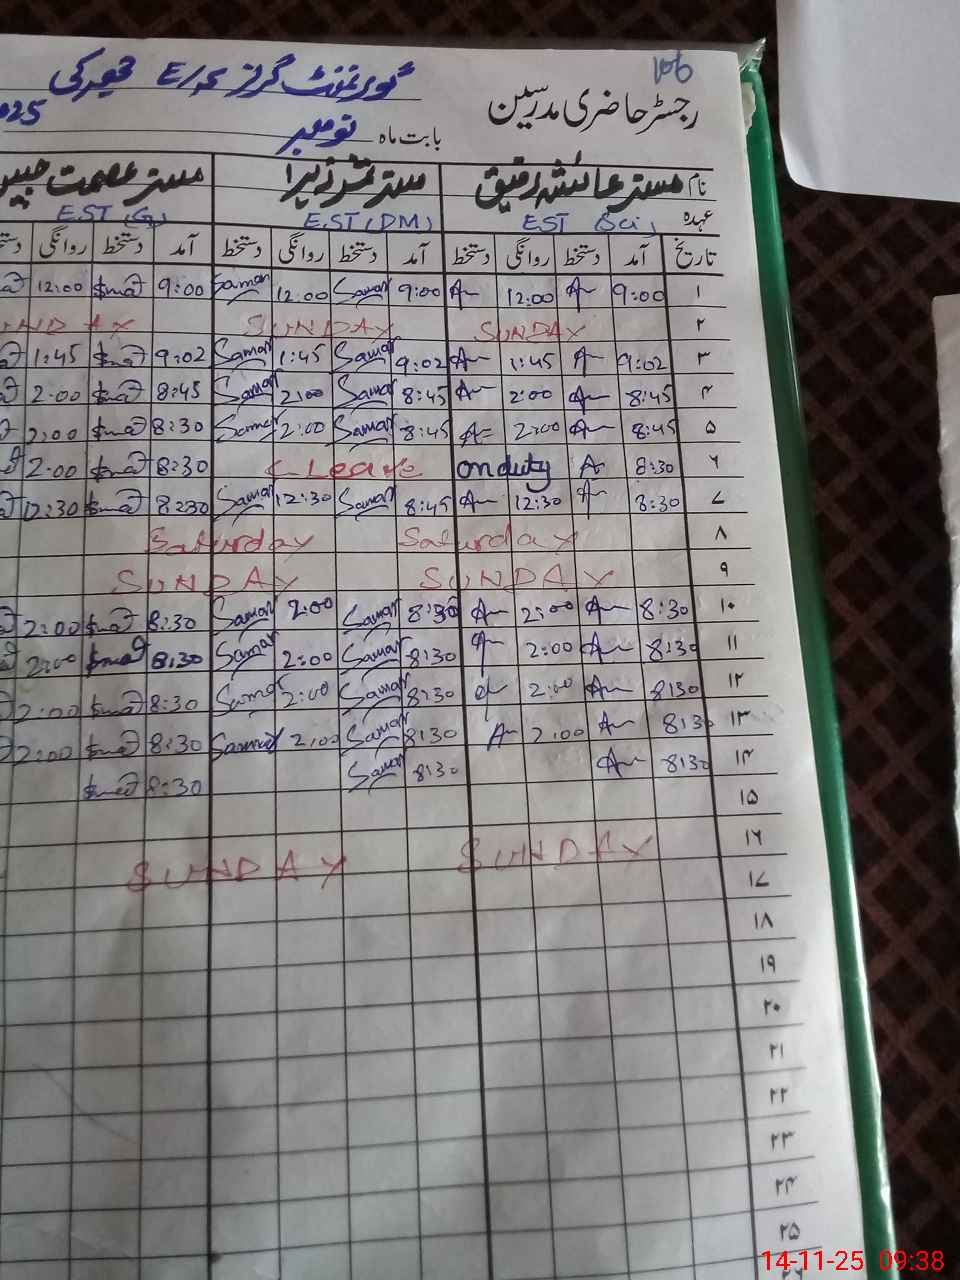 106
گورنمنٹ گرلز E/S
رجسٹر حاضری مدرسین
بابت ماہ نومبر 2025
نام مسز عائشہ رفیق مسز ثمر زہرا مسز عصمت
عہدہ EST (Sci) E.ST (DM) E.ST (G)
تاریخ آمد دستخط روانگی دستخط آمد دستخط روانگی دستخط آمد دستخط روانگی
۱ 9:00 12:00 9:00 Saman 12:00 Saman 9:00 12:00
۲ SUNDAY SUNDAY SUNDAY
۳ 9:02 1:45 9:02 Saman 1:45 Saman 9:02 1:45
۴ 8:45 2:00 8:45 Saman 2:00 Saman 8:45 2:00
۵ 8:45 2:00 8:45 Saman 2:00 Saman 8:30 2:00
۶ 8:30 on duty Leave 8:30 2:00
۷ 8:30 12:30 8:45 Saman 12:30 Saman 8:30 12:30
۸ Saturday Saturday
۹ SUNDAY SUNDAY
۱۰ 8:30 2:00 8:30 Saman 2:00 Saman 8:30 2:00
۱۱ 8:30 2:00 8:30 Saman 2:00 Saman 8:30 2:00
۱۲ 8:30 2:00 8:30 Saman 2:00 Saman 8:30 2:00
۱۳ 8:30 2:00 8:30 Saman 2:00 Saman 8:30 2:00
۱۴ 8:30 8:30 Saman 8:30
۱۵
۱۶ SUNDAY SUNDAY
۱۷
۱۸
۱۹
۲۰
۲۱
۲۲
۲۳
۲۴
۲۵
14-11-25 09:38